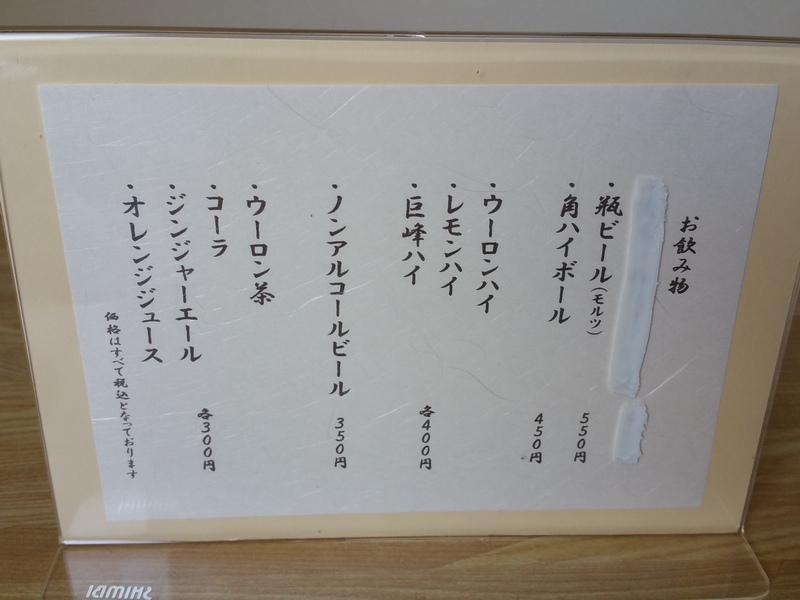 お飲み物
・瓶ビール(モルツ) 550円
・角ハイボール 450円
・ウーロンハイ
・レモンハイ
・巨峰ハイ 各400円
・ノンアルコールビール 350円
・ウーロン茶
・コーラ
・ジンジャーエール 各300円
・オレンジジュース
価格はすべて税込となっております